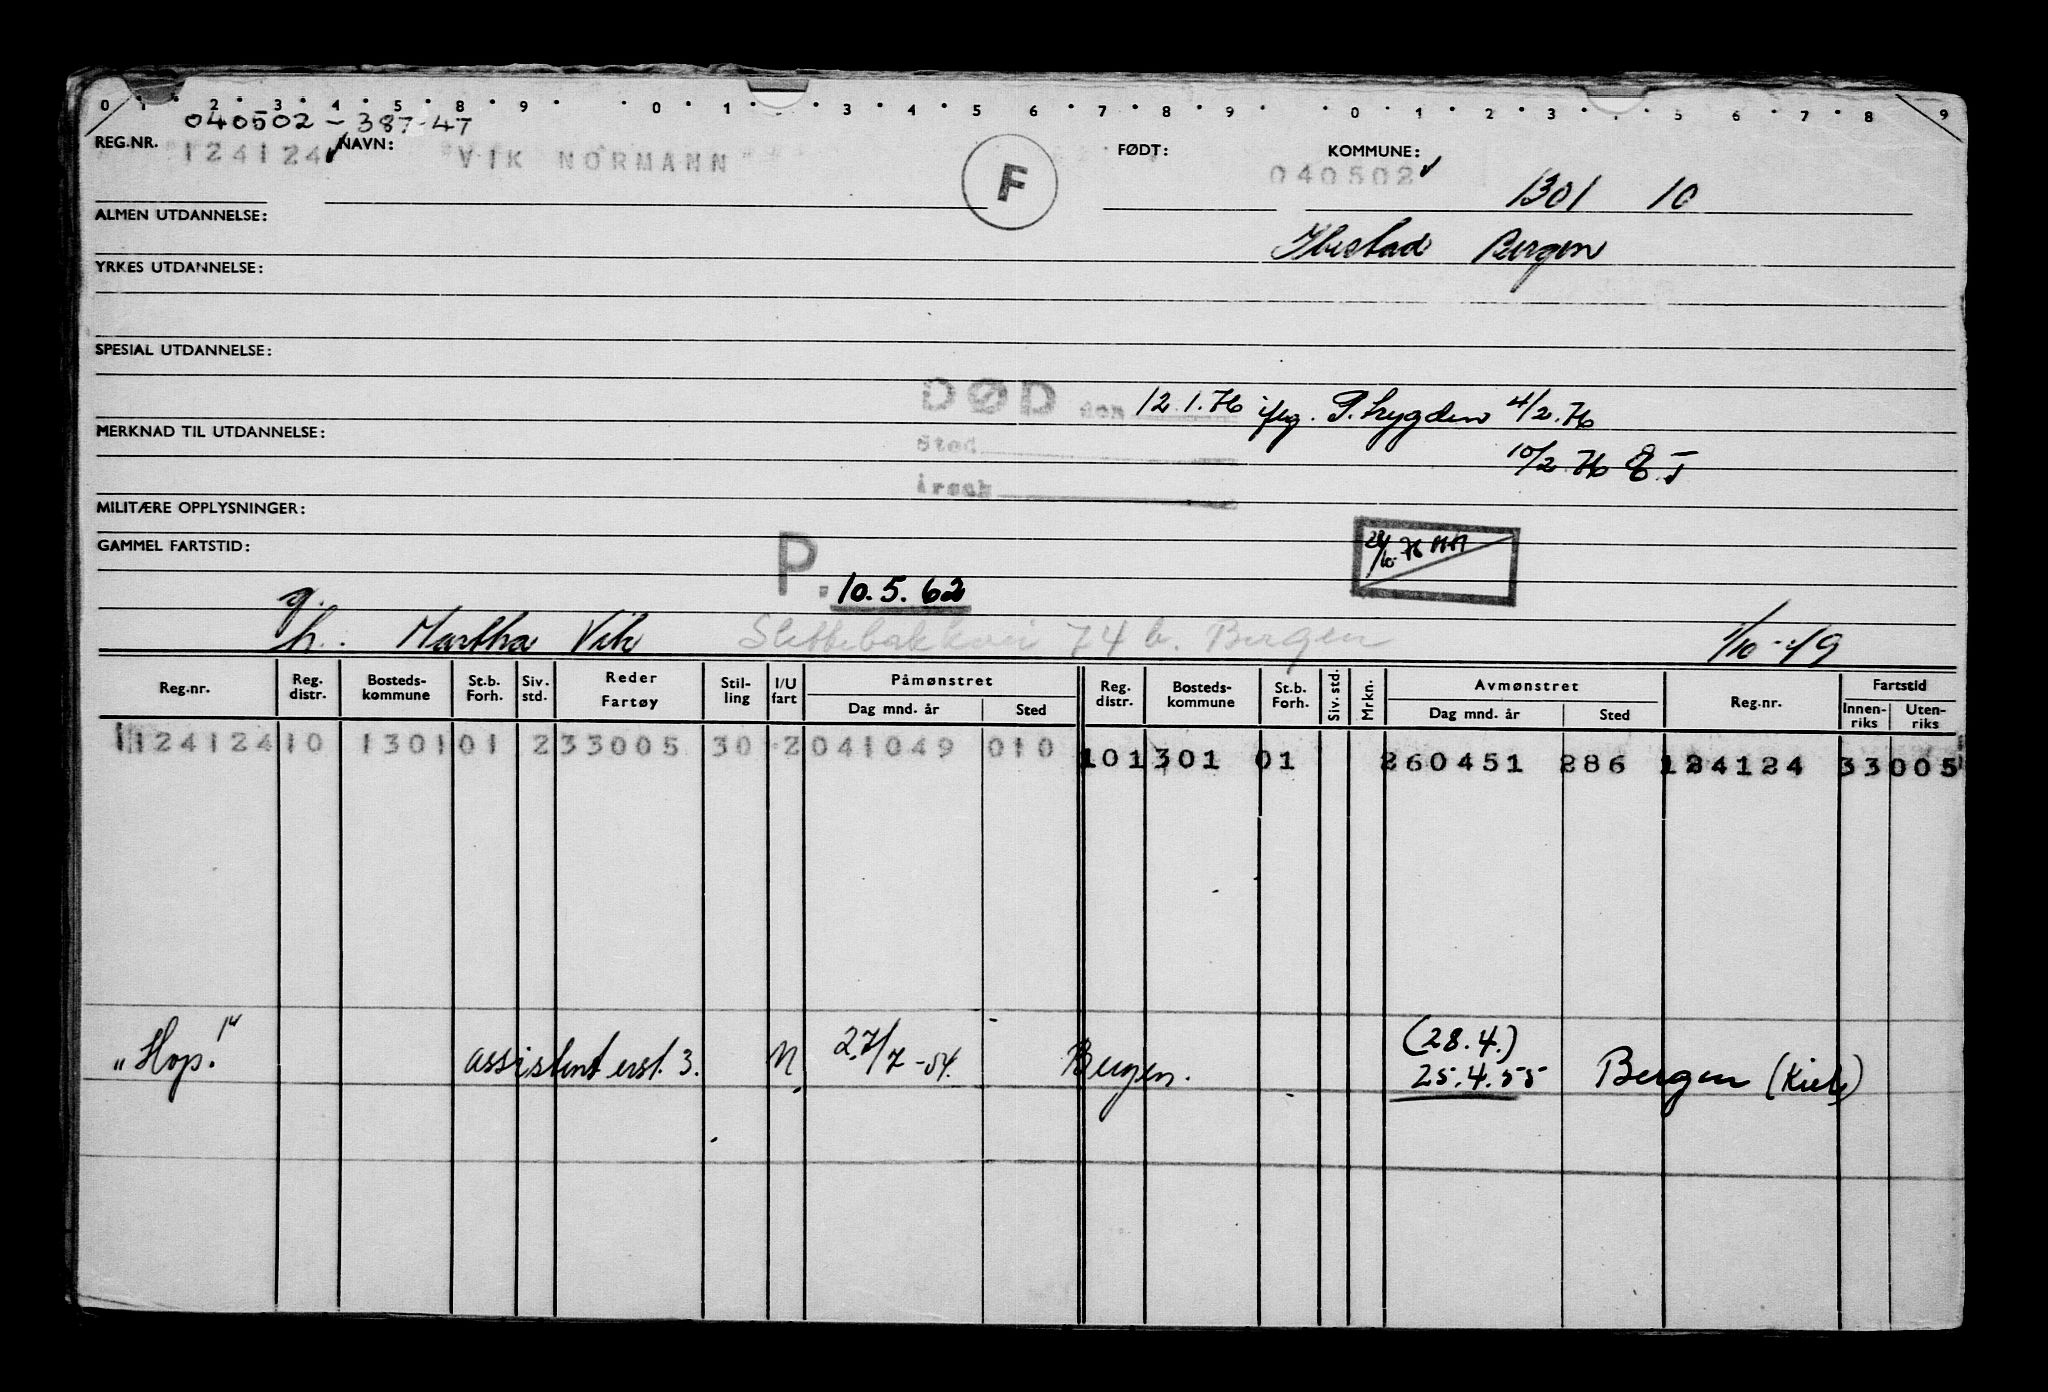 0 1 2 3 4 5 8 9 0 1 3 4 5 6 7 8 9 0 1 2 3 5 6 7 8 9
040502 - 387-47
REG.NR. 124124 NAVN: VIK NORMANN F FØDT: KOMMUNE: 040502
1301 10
ALMEN UTDANNELSE:
Ibestad Bergen
YRKES UTDANNELSE:
SPESIAL UTDANNELSE:
DØD den 12.1.76 iflg. P.trygden 4/2.76
MERKNAD TIL UTDANNELSE:
Sted
10/2.76
Årsak
MILITÆRE OPPLYSNINGER:
GAMMEL FARTSTID:
P. 10.5.62
g.
h. Martha Vik Slettebakkvei 74 b. Bergen 1/10-49
Reg.nr. Reg. distr. Bosteds-kommune St.b. Forh. Siv. std. Reder Fartøy Stil-ling I/U fart Påmønstret Dag mnd. år Sted Reg. distr. Bosteds-kommune St.b. Forh. Siv. std. Mrkn. Avmønstret Dag mnd. år Sted Reg.nr. Fartstid Innen-riks Uten-riks
124124 10 1301 01 2 33005 30 2 041049 010 10 1301 01 260451 286 124124 33005
(28.4.)
"Hop" assistent erst. 3. N 27/7-54. Bergen. 25.4.55 Bergen (Kiel)